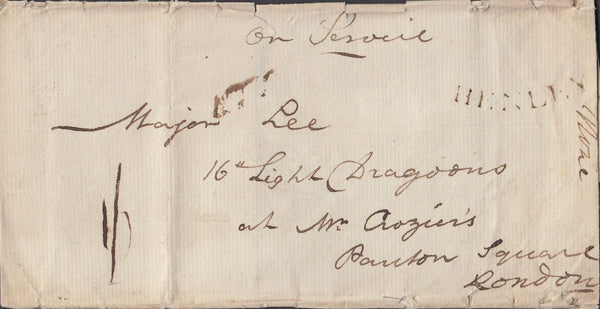 On Service
HENLEY
Major Lee
16th Light Dragoons
at Mr Crozier's
Panton Square
London